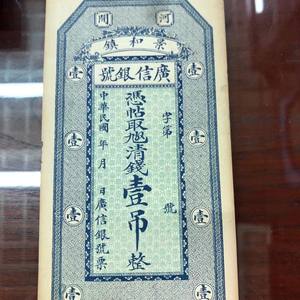 河間
景和鎮
廣信銀號
字第 號
憑帖取兌清錢壹吊整
中華民國 年 月 日廣信銀號票
壹 壹
壹 壹
壹 壹
壹 壹